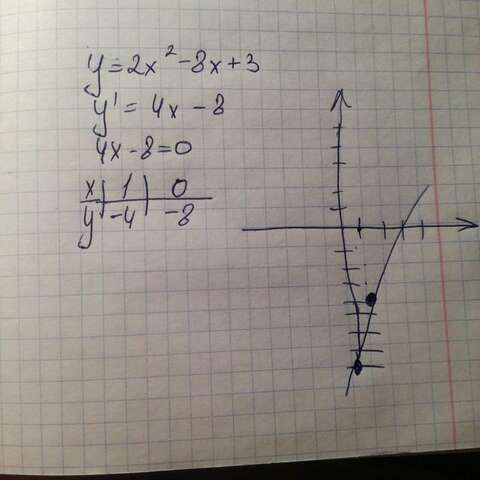 y=2x²-8x+3
y'=4x-8
4x-8=0
x | 1 | 0
y | -4 | -8